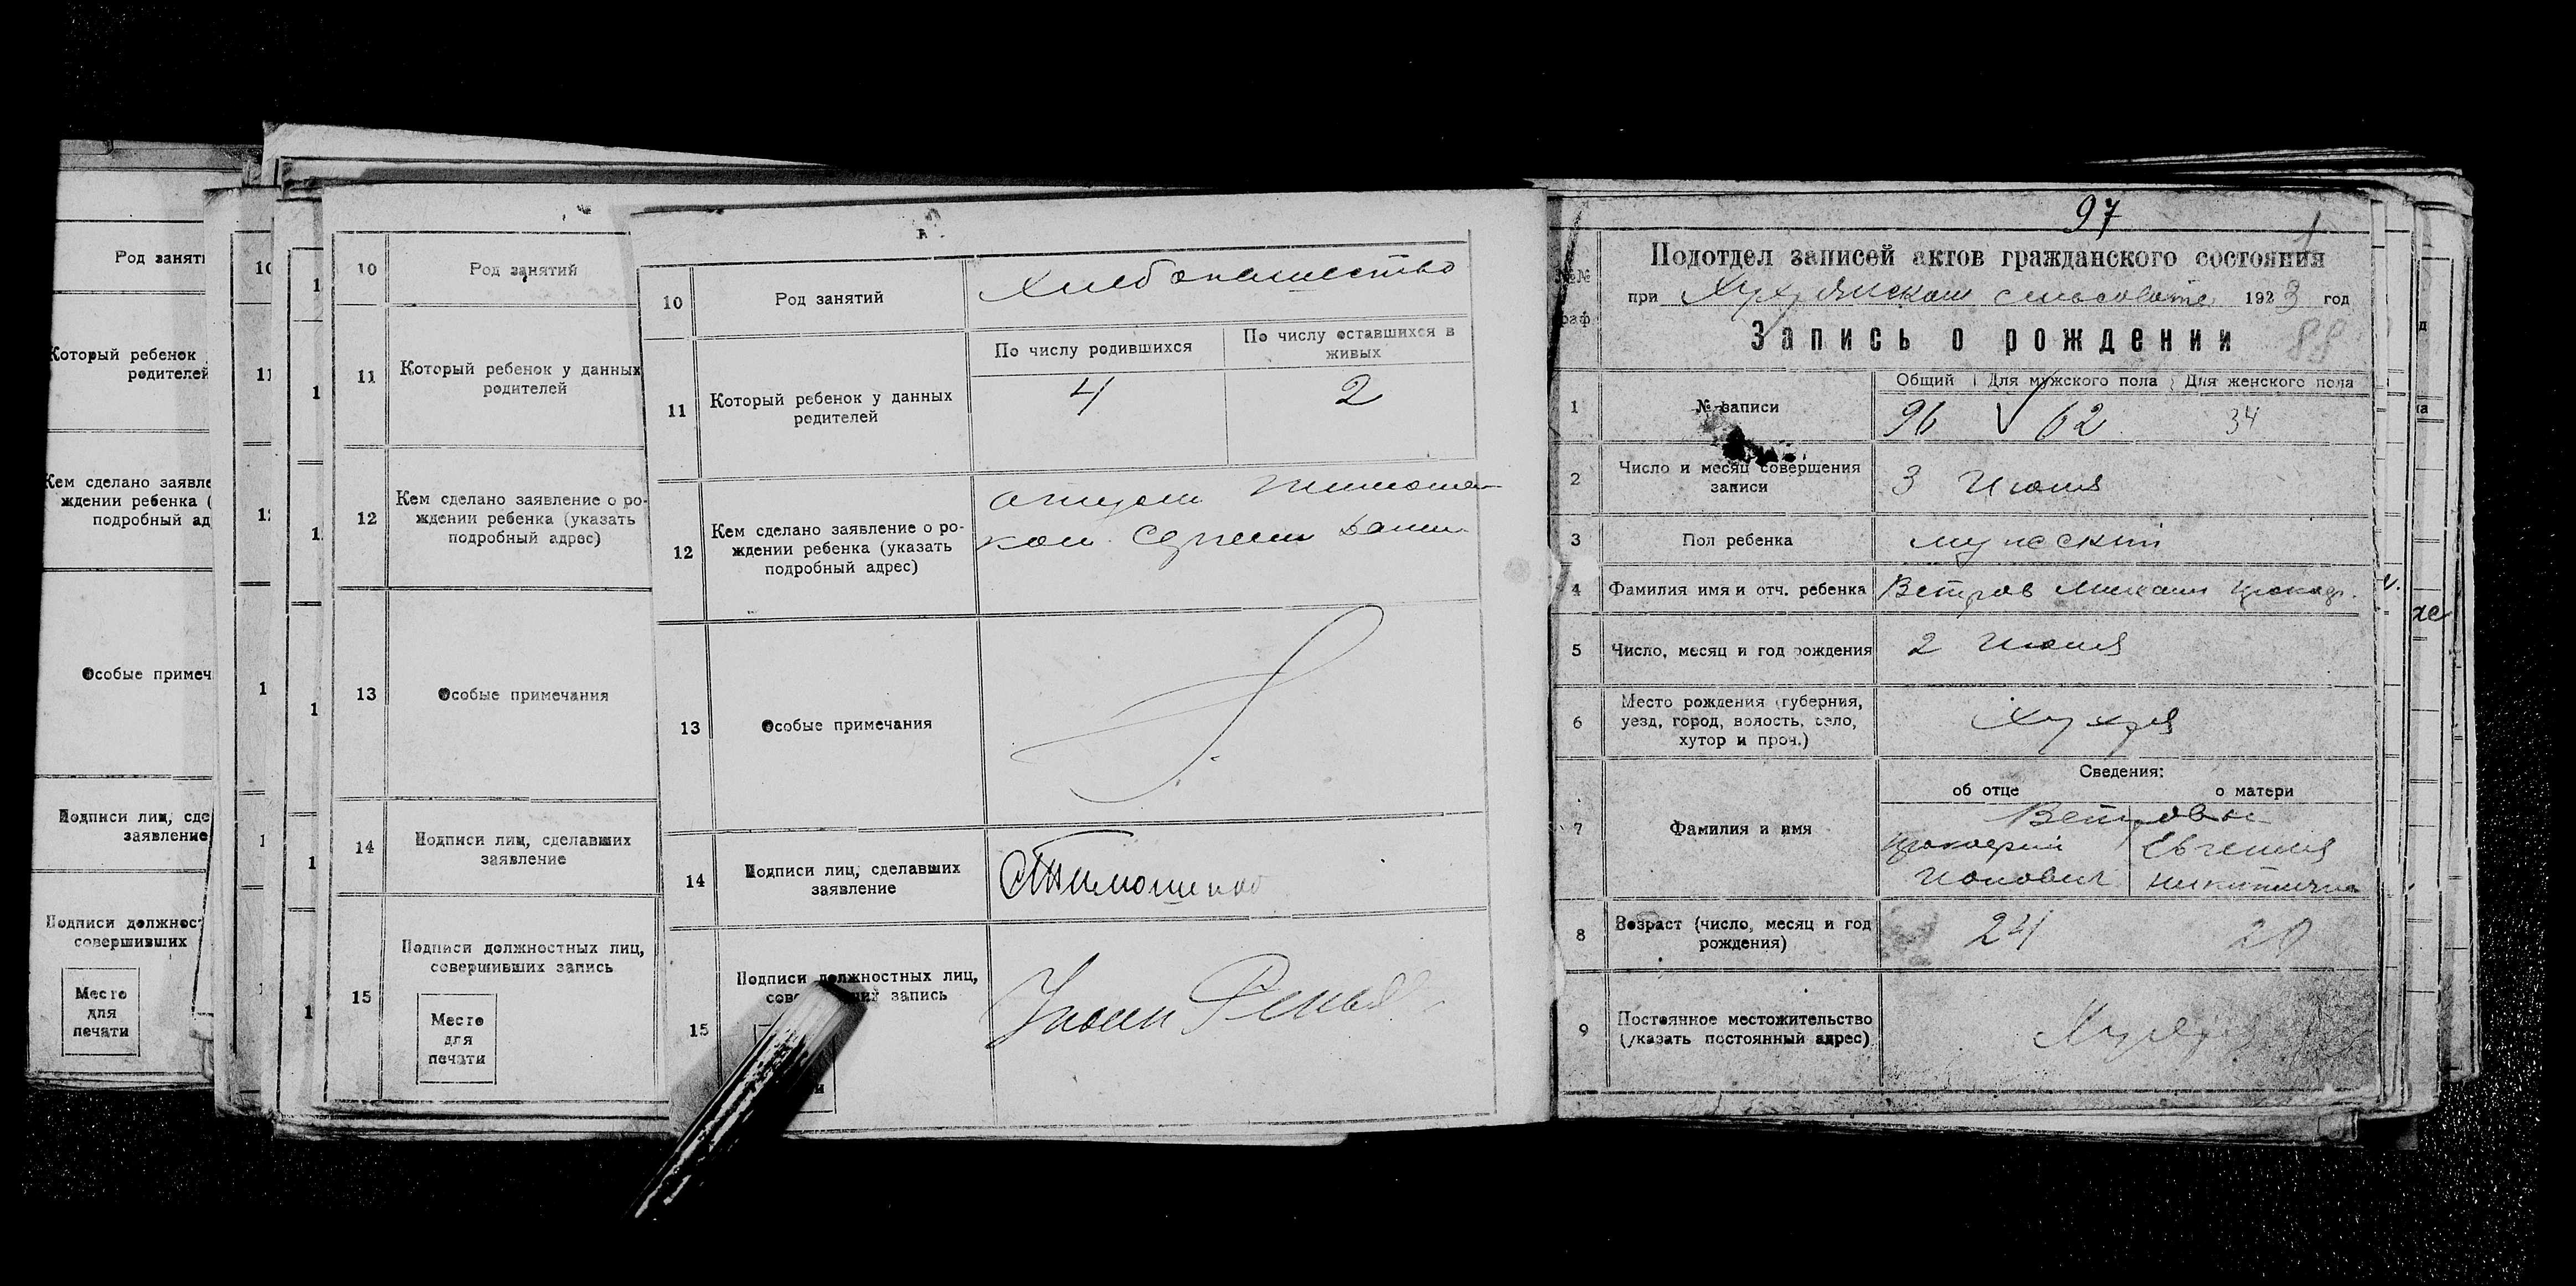 Род заняти
Который ребенок
родителей
Кем сделано заявле
ждении ребенка (
подробный ад
Особые примеч
Подписи лиц, сде
заявление
Подписи должнос
совершивших
Место
для
печати
10 Род занятий
11 Который ребенок у данных
родителей
12 Кем сделано заявление о ро-
ждении ребенка (указать
подробный адрес)
13 Особые примечания
14 Подписи лиц, сделавших
заявление
15 Подписи должностных лиц,
совершивших запись
Место
для
печати
10 Род занятий Хлебопашество
По числу родившихся По числу оставшихся в
живых
11 Который ребенок у данных
родителей 4 2
12 Кем сделано заявление о ро-
ждении ребенка (указать
подробный адрес)
отцом Тимошен
ком Сергеем
13 Особые примечания
14 Подписи лиц, сделавших
заявление
СТимошенко
15 Подписи должностных лиц,
запись
97
Подотдел записей актов гражданского состояния
№№
граф
при Хухрянском сельсовете 1923 год
Запись о рождении 88
Общий Для мужского пола Для женского пола
1 № записи 96 62 34
2 Число и месяц совершения
записи 3 Июля
3 Пол ребенка мужской
4 Фамилия имя и отч. ребенка Ветров Михаил Прокоф.
5 Число, месяц и год рождения 2 Июля
6 Место рождения (губерния,
уезд, город, волость, село,
хутор и проч.) Хухря
Сведения:
об отце о матери
Ветровы
7 Фамилия и имя Прокофий Евгения
Ионович Никитична
8 Возраст (число, месяц и год
рождения) 24 20
9 Постоянное местожительство
(указать постоянный адрес) Хухря